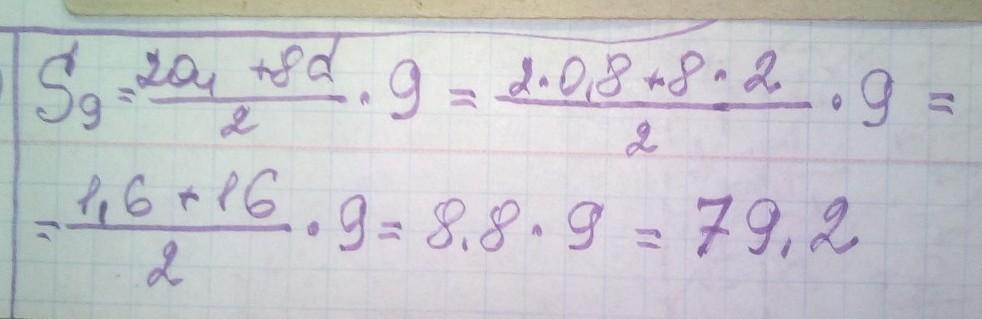 S₉ = (2a₁ + 8d)/2 · 9 = (2·0,8 + 8·2)/2 · 9 =
= (1,6 + 16)/2 · 9 = 8,8 · 9 = 79,2